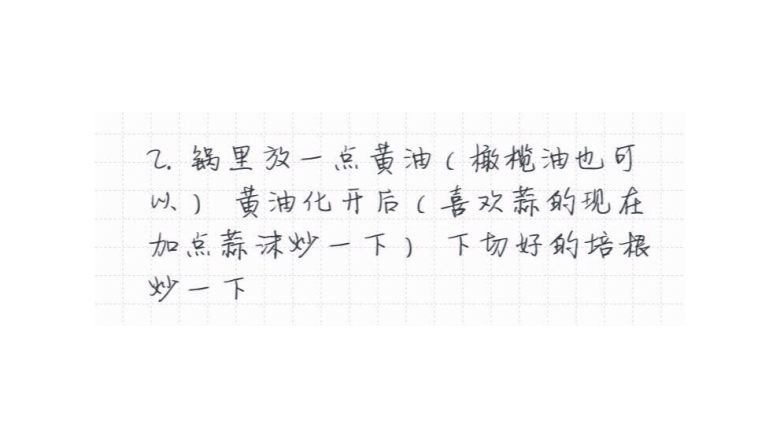 2. 锅里放一点黄油(橄榄油也可
以) 黄油化开后(喜欢蒜的现在
加点蒜沫炒一下) 下切好的培根
炒一下